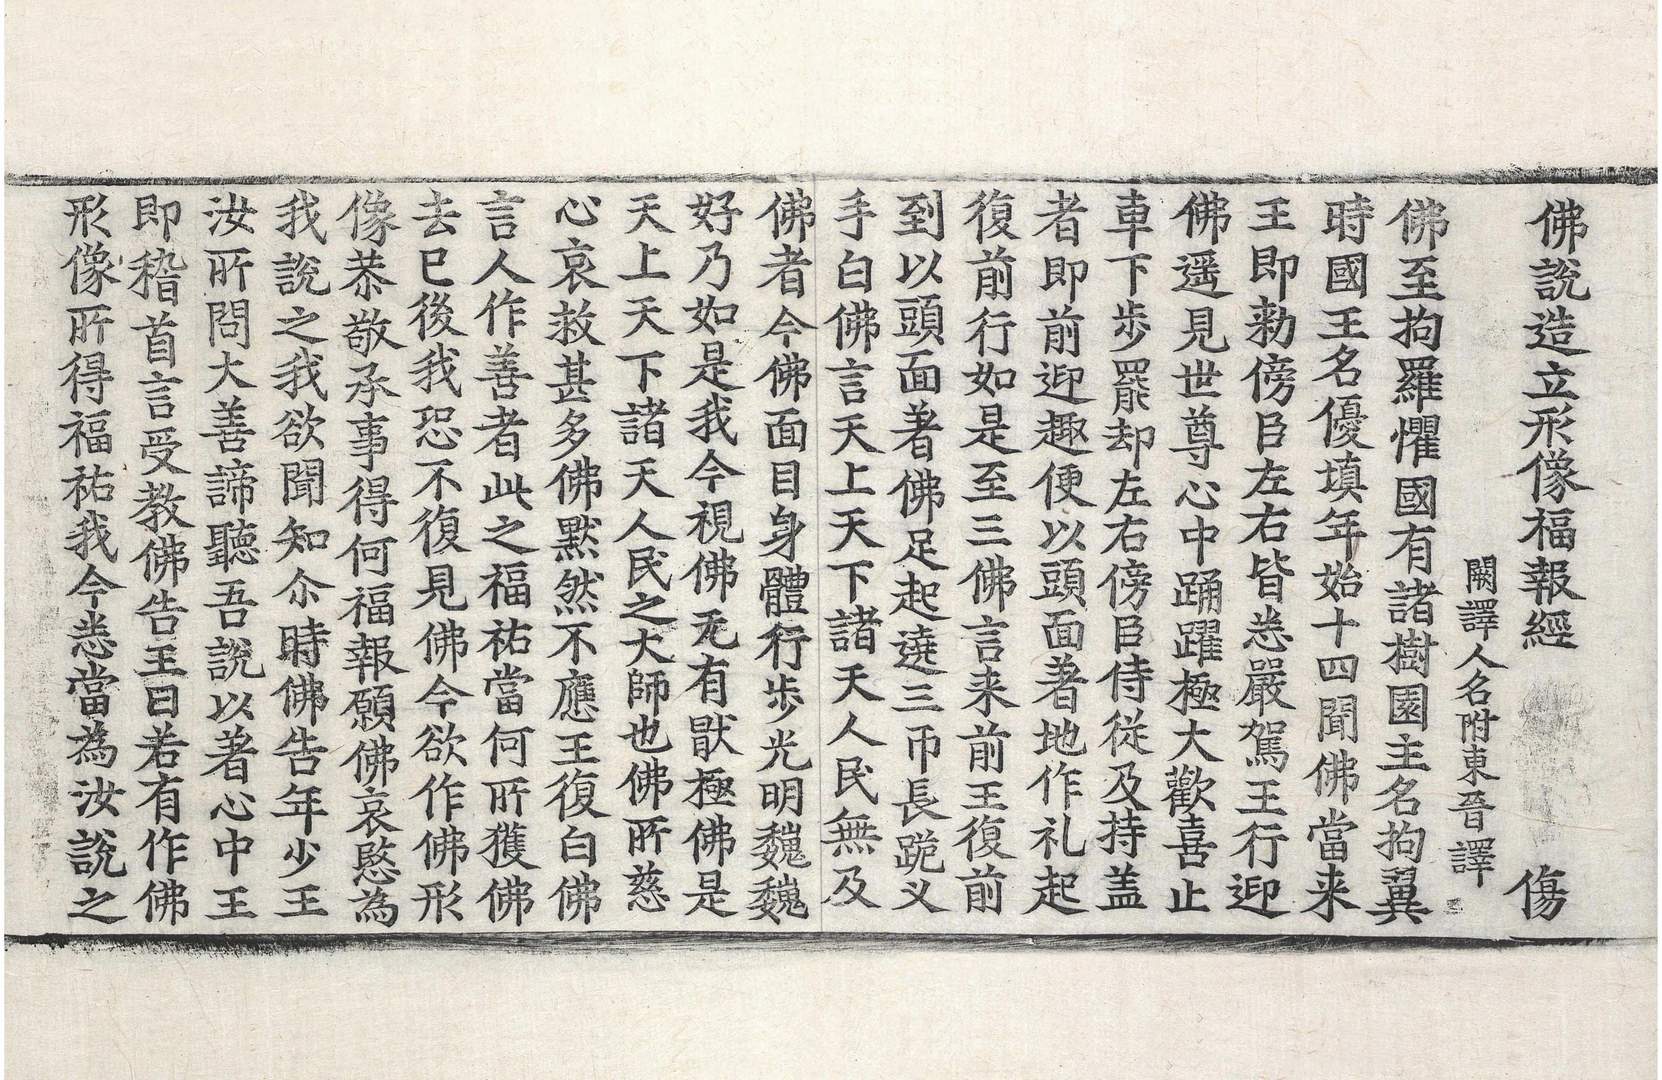 佛說造立形像福報經　傷
闕譯人名附東晉譯
佛至拘羅懼國有諸樹園主名拘翼
時國王名優填年始十四聞佛當来
王即勑傍臣左右皆悉嚴駕王行迎
佛遥見世尊心中踊躍極大歡喜止
車下步罷却左右傍臣侍従及持盖
者即前迎趣便以頭面著地作礼起
復前行如是至三佛言来前王復前
到以頭面著佛足起遶三帀長跪义
手白佛言天上天下諸天人民無及
佛者今佛面目身體行步光明巍巍
好乃如是我今視佛无有猒極佛是
天上天下諸天人民之大師也佛所慈
心哀救甚多佛默然不應王復白佛
言人作善者此之福祐當何所獲佛
去已後我恐不復見佛今欲作佛形
像恭敬承事得何福報願佛哀愍為
我說之我欲聞知尒時佛告年少王
汝所問大善諦聽吾說以著心中王
即稽首言受教佛告王曰若有作佛
形像所得福祐我今悉當為汝說之